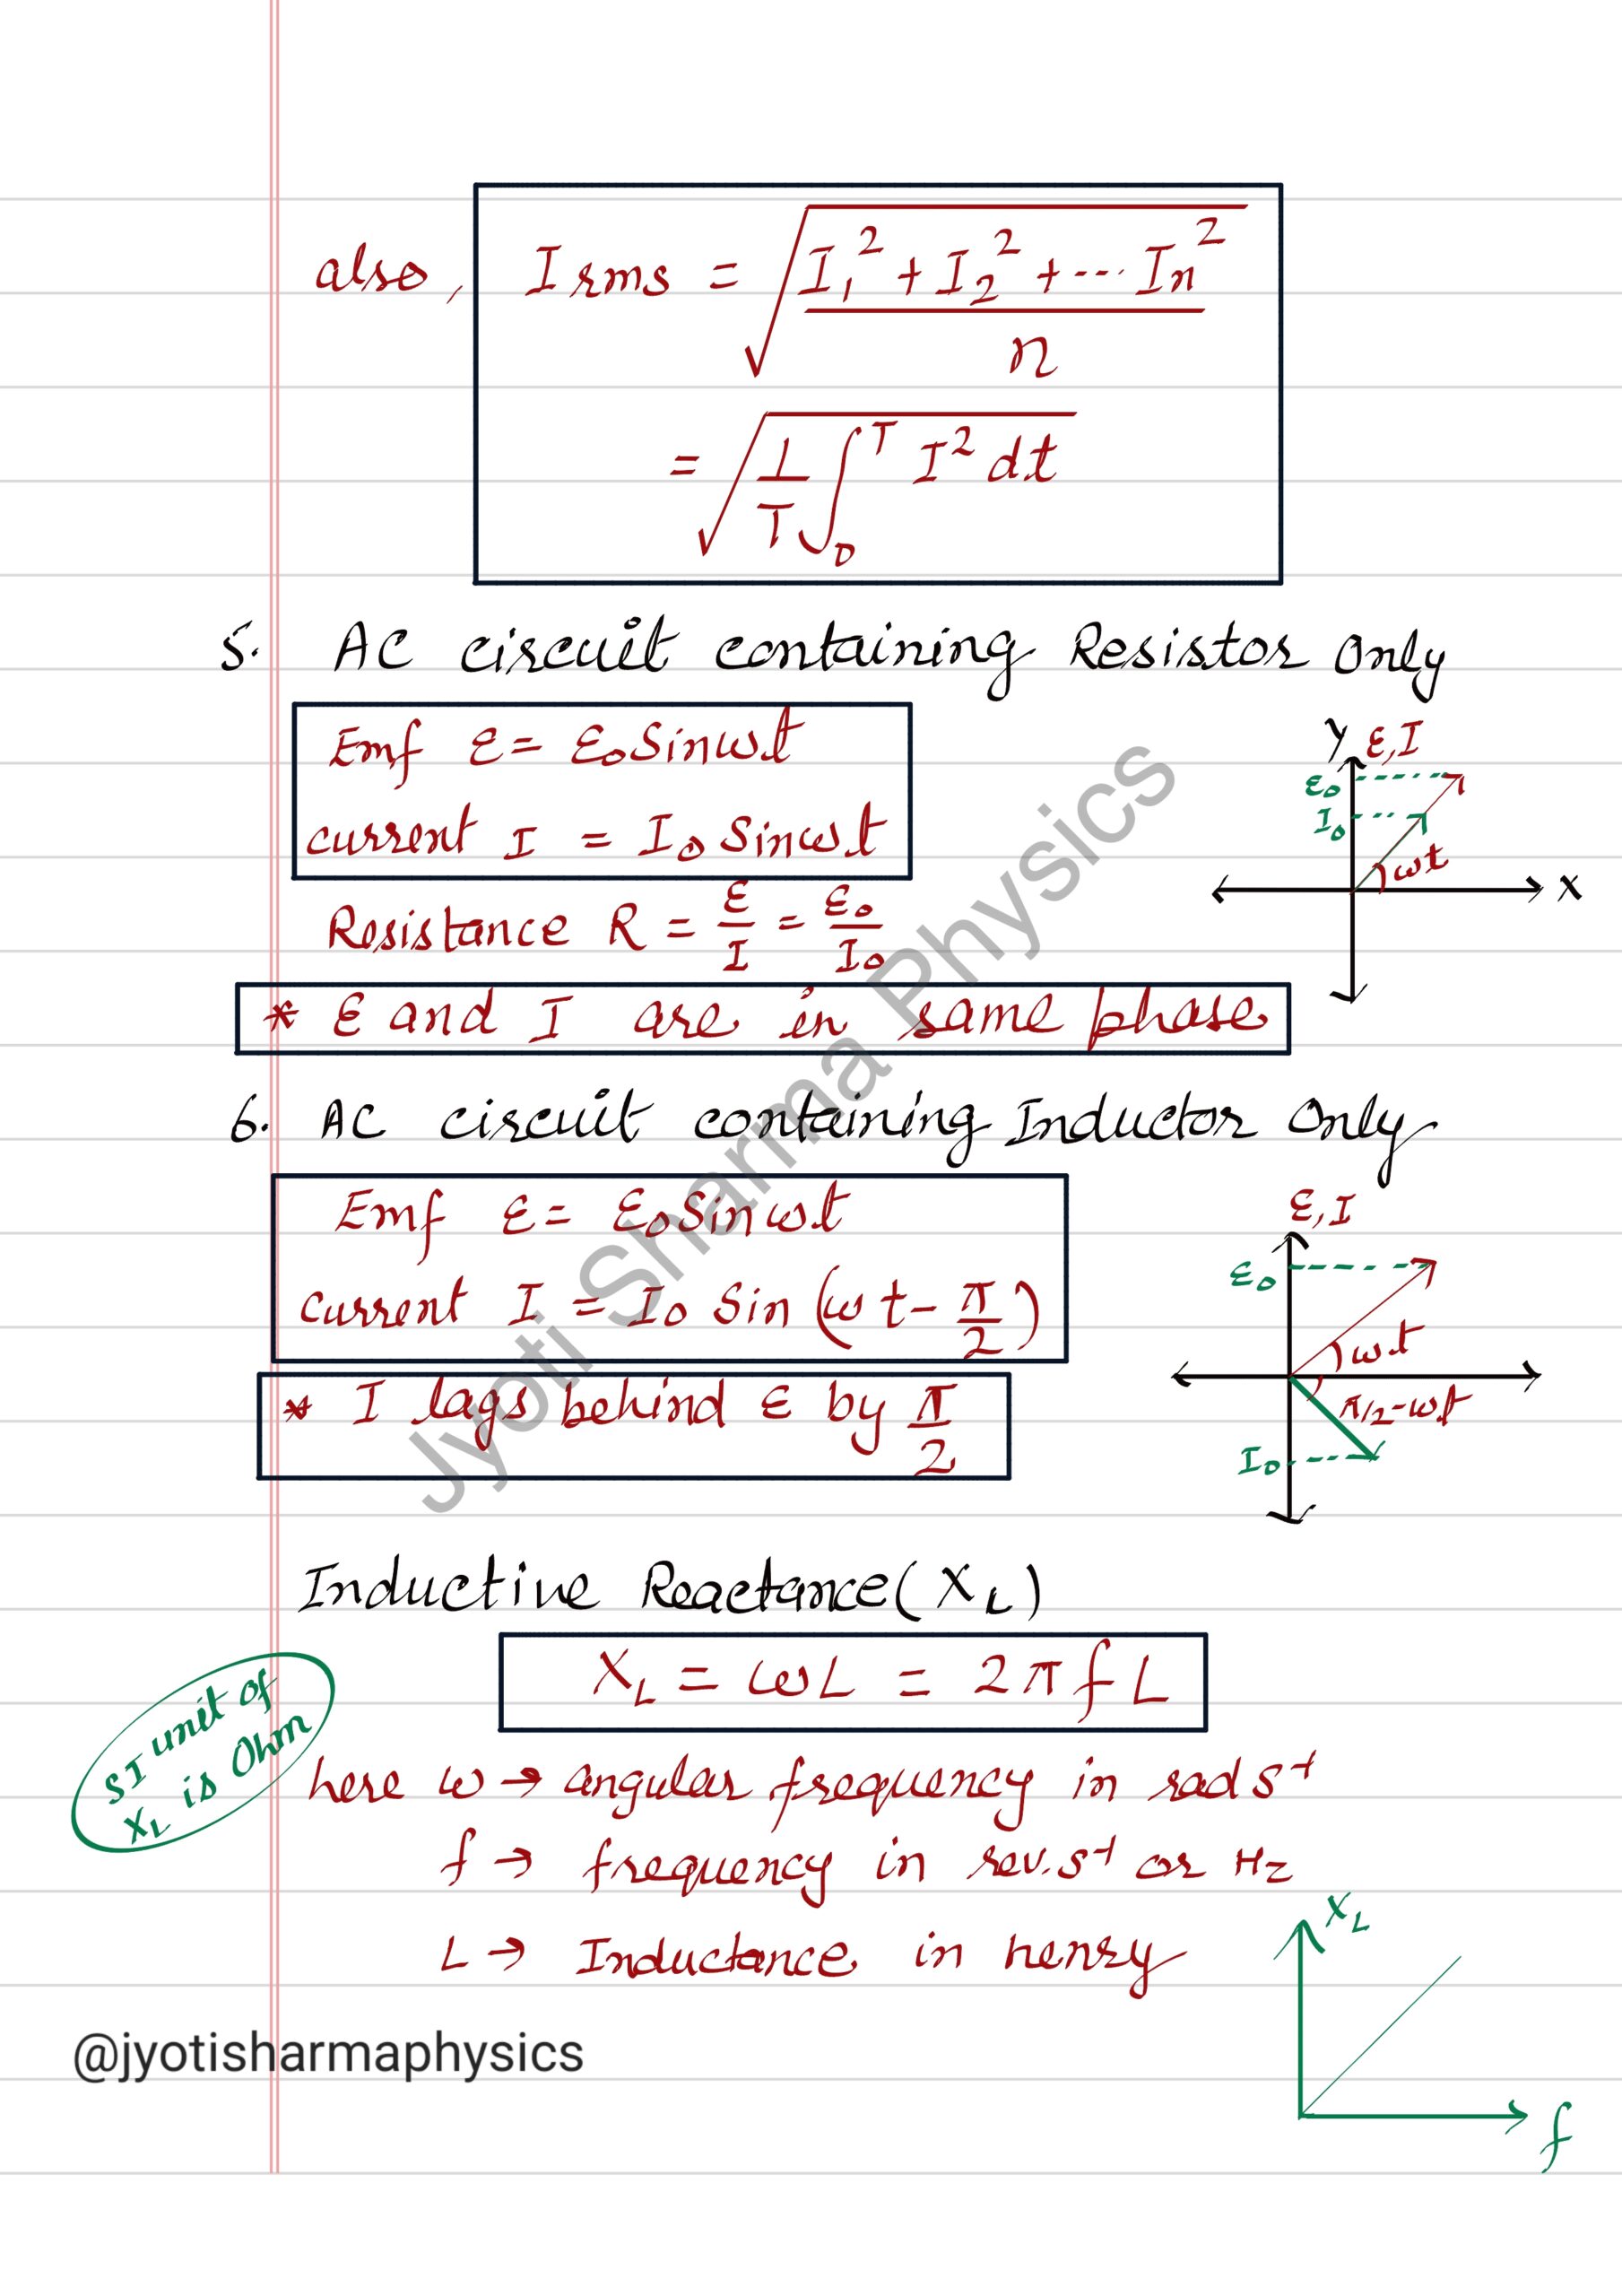 also, I rms = √((I₁² + I₂² + ··· In²)/n)
= √(1/T ∫₀ᵀ I² dt)
5. AC circuit containing Resistor Only
Emf ε = ε₀ Sinωt
current I = I₀ Sinωt
Resistance R = ε/I = ε₀/I₀
y ε, I
ε₀
I₀
ωt
x
* ε and I are in same phase
6. AC circuit containing Inductor Only
Emf ε = ε₀ Sinωt
current I = I₀ Sin (ωt - π/2)
* I lags behind ε by π/2
ε, I
ε₀
ωt
π/2-ωt
I₀
Inductive Reactance (X_L)
X_L = ωL = 2πfL
SI unit of
X_L is Ohm
here ω → angular frequency in rad s⁻¹
f → frequency in rev.s⁻¹ or Hz
L → Inductance in henry
X_L
f
Jyoti Sharma Physics
@jyotisharmaphysics